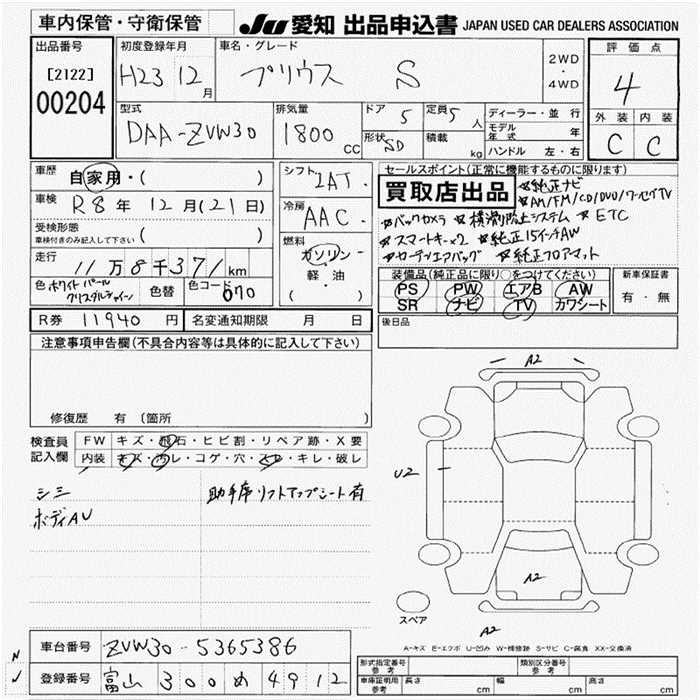 車内保管・守衛保管
JU 愛知 出品申込書 JAPAN USED CAR DEALERS ASSOCIATION
出品番号
[2122]
00204
初度登録年月
H23 12月
車名・グレード
プリウス S
2WD
・
4WD
評価点
4
外装 内装
C C
型式
DAA-ZVW30
排気量
1800 CC
ドア 5
定員 5人
形状 SD
積載 kg
ディーラー・並行
モデル年式 年
ハンドル 左・右
車歴
自家用・( )
車検
R8年 12月(21日)
受検形態
車検付きのみ記入して下さい ( )
走行
11万8千371km
色 ホワイトパール
クリスタルシャイン
色替
色コード 070
シフト
IAT.
冷房
AAC.
燃料
ガソリン
軽・油
( )
セールスポイント(正常に機能するものに限ります)
買取店出品
☆純正ナビ
☆AM/FM/CD/DVD/ワンセグTV
☆バックカメラ ☆横滑防止システム ☆ETC
☆スマートキー×2 ☆純正15インチAW
☆カーテンエアバッグ ☆純正フロアマット
装備品(純正品に限り○をつけてください)
PS PW エアB AW
SR ナビ TV カワシート
新車保証書
有・無
後日品
R券 11940円
名変通知期限 月 日
注意事項申告欄(不具合内容等は具体的に記入して下さい)
修復歴 有 (箇所 )
検査員
記入欄
FW キズ・飛石・ヒビ割・リペア跡・X要
内装 キズ・汚レ・コゲ・穴・スレ・キレ・破レ
シミ
ボディAU
助手席リフトアップシート有
A2
U2
A2
スペア
A2
A-キズ E-エクボ U-凹み W-補修跡 S-サビ C-腐食 XX-交換済
車台番号 ZVW30-5365386
登録番号 富山 300 め 4912
形式指定番号
参考
類別区分番号
参考
車庫証明用
参考
長さ cm 幅 cm 高さ cm